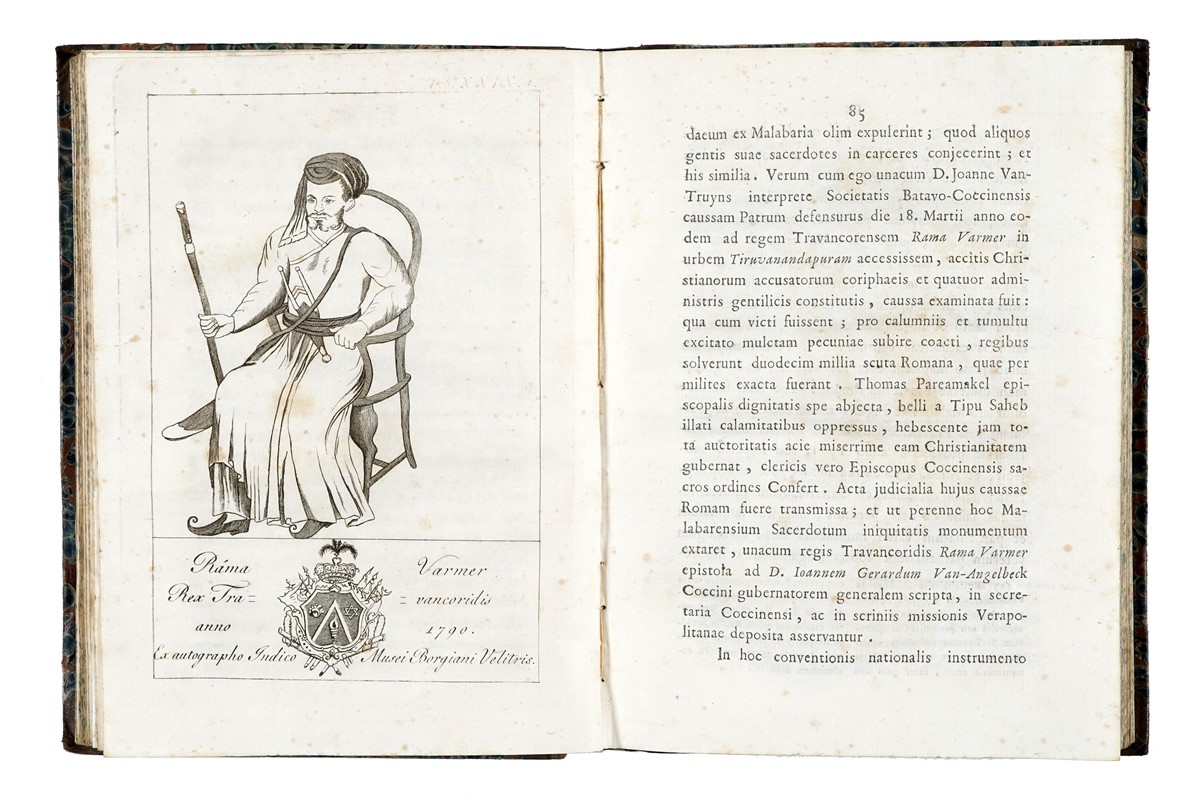 Ráma Varmer
Rex Tra= =vancoridis
anno 1790.
Ex autographo Indico Musei Borgiani Velitris.
85
daeum ex Malabaria olim expulerint; quod aliquos
gentis suae sacerdotes in carceres conjecerint; et
his similia. Verum cum ego unacum D. Joanne Van-
Truyns interprete Societatis Batavo-Coccinensis
caussam Patrum defensurus die 18. Martii anno eo-
dem ad regem Travancorensem Rama Varmer in
urbem Tiruvanandapuram accessissem, accitis Chri-
stianorum accusatorum coriphaeis et quatuor admi-
nistris gentilicis constitutis, caussa examinata fuit:
qua cum victi fuissent; pro calumniis et tumultu
excitato mulctam pecuniae subire coacti, regibus
solverunt duodecim millia scuta Romana, quae per
milites exacta fuerant. Thomas Pareamakel epi-
scopalis dignitatis spe abjecta, belli a Tipu Saheb
illati calamitatibus oppressus, hebescente jam to-
ta auctoritatis acie miserrime eam Christianitatem
gubernat, clericis vero Episcopus Coccinensis sa-
cros ordines Confert. Acta judicialia hujus caussae
Romam fuere transmissa; et ut perenne hoc Ma-
labarensium Sacerdotum iniquitatis monumentum
extaret, unacum regis Travancoridis Rama Varmer
epistola ad D. Ioannem Gerardum Van-Angelbeck
Coccini gubernatorem generalem scripta, in secre-
taria Coccinensi, ac in scriniis missionis Verapo-
litanae deposita asservantur.
In hoc conventionis nationalis instrumento